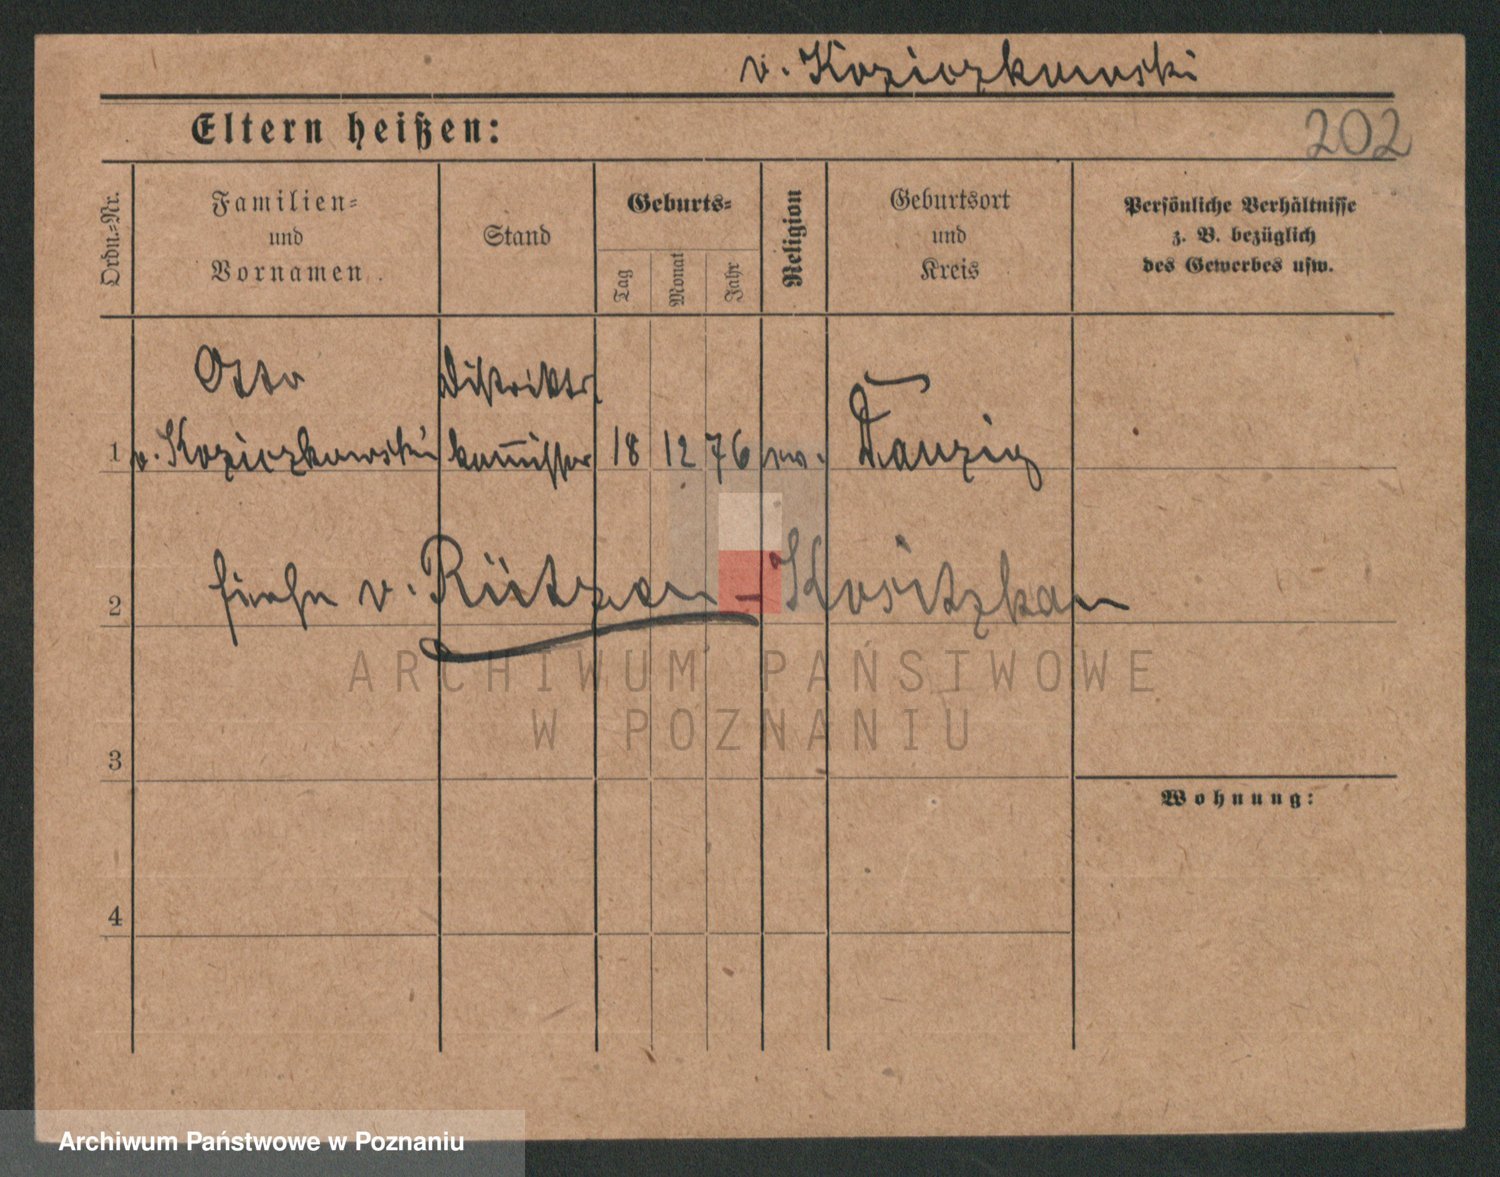 v. Koziczkowski
Eltern heißen:
202
Ordn.-Nr.
Familien-
und
Vornamen
Stand
Geburts-
Tag
Monat
Jahr
Religion
Geburtsort
und
Kreis
Persönliche Verhältnisse
z. B. bezüglich
des Gewerbes usw.
Otto
Distrikts
1 v. Koziczkowski kom̄issar 18 12 76 ev. Danzig
2 siehe v. Rützen-Kositzkau
ARCHIWUM PAŃSTWOWE
W POZNANIU
3
Wohnung:
4
Archiwum Państwowe w Poznaniu